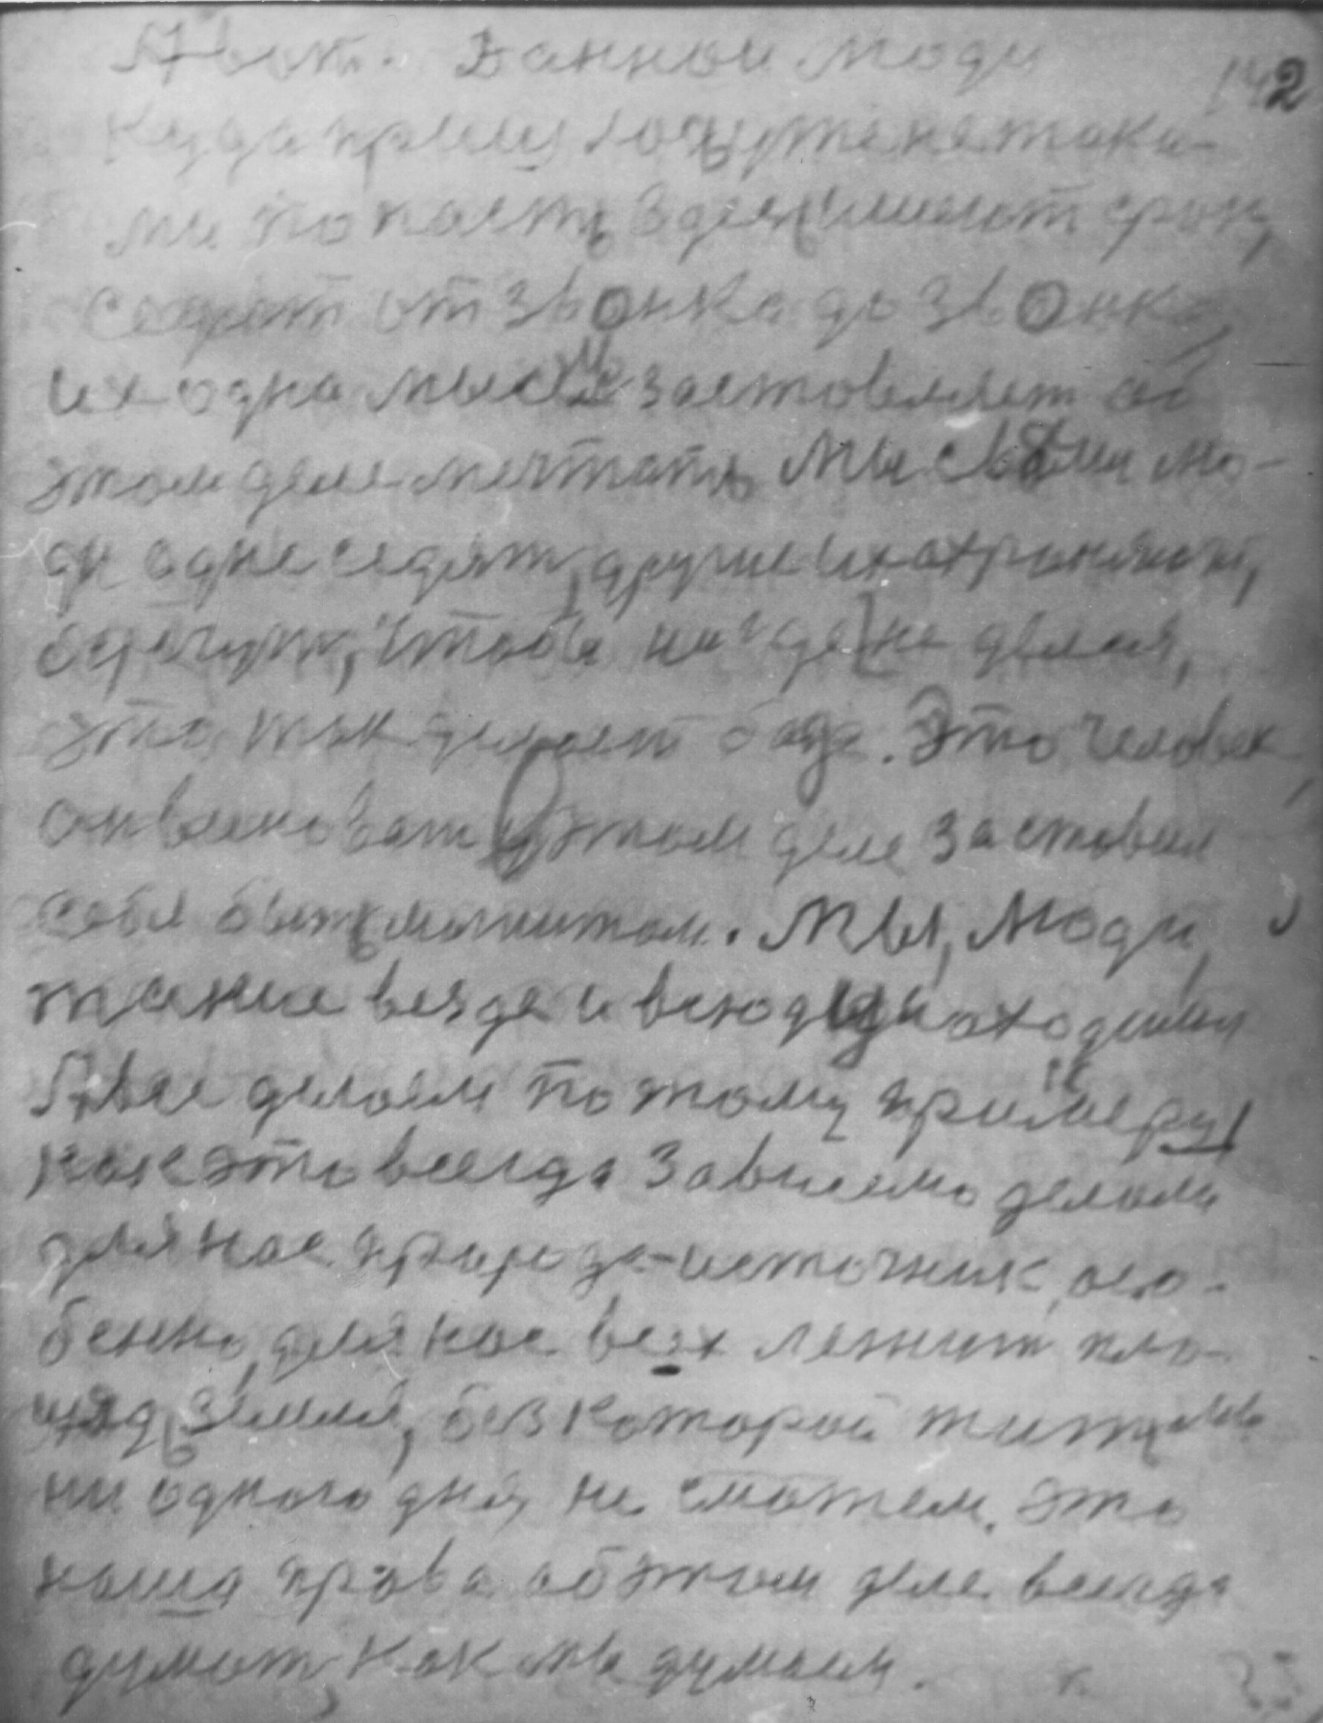 А вот. Данной люди
142
куда придут они уже не таки-
ми попасть в деяд имеют срок,
сидят от звонка до звонка,
их одна мысль заставляет об
этом деле мечтать. Мы с вами лю-
ди одне седят, другие их охраняют,
берегут, чтобы нигде не делся,
это так делает беда. Это человек,
он виноват в этом деле заставил
себя быть магнитом. Мы, люди,
такие везде и всюду находимся
А все делаем по тому примеру,
как это всегда зависимо делом
для нас природа-источник, осо-
бенно, для нас всех лежит пло-
щадь земля, без которой жить мы
ни одного дня не сможем. Это
наша права об этом деле всегда
думать, как мы думаем.